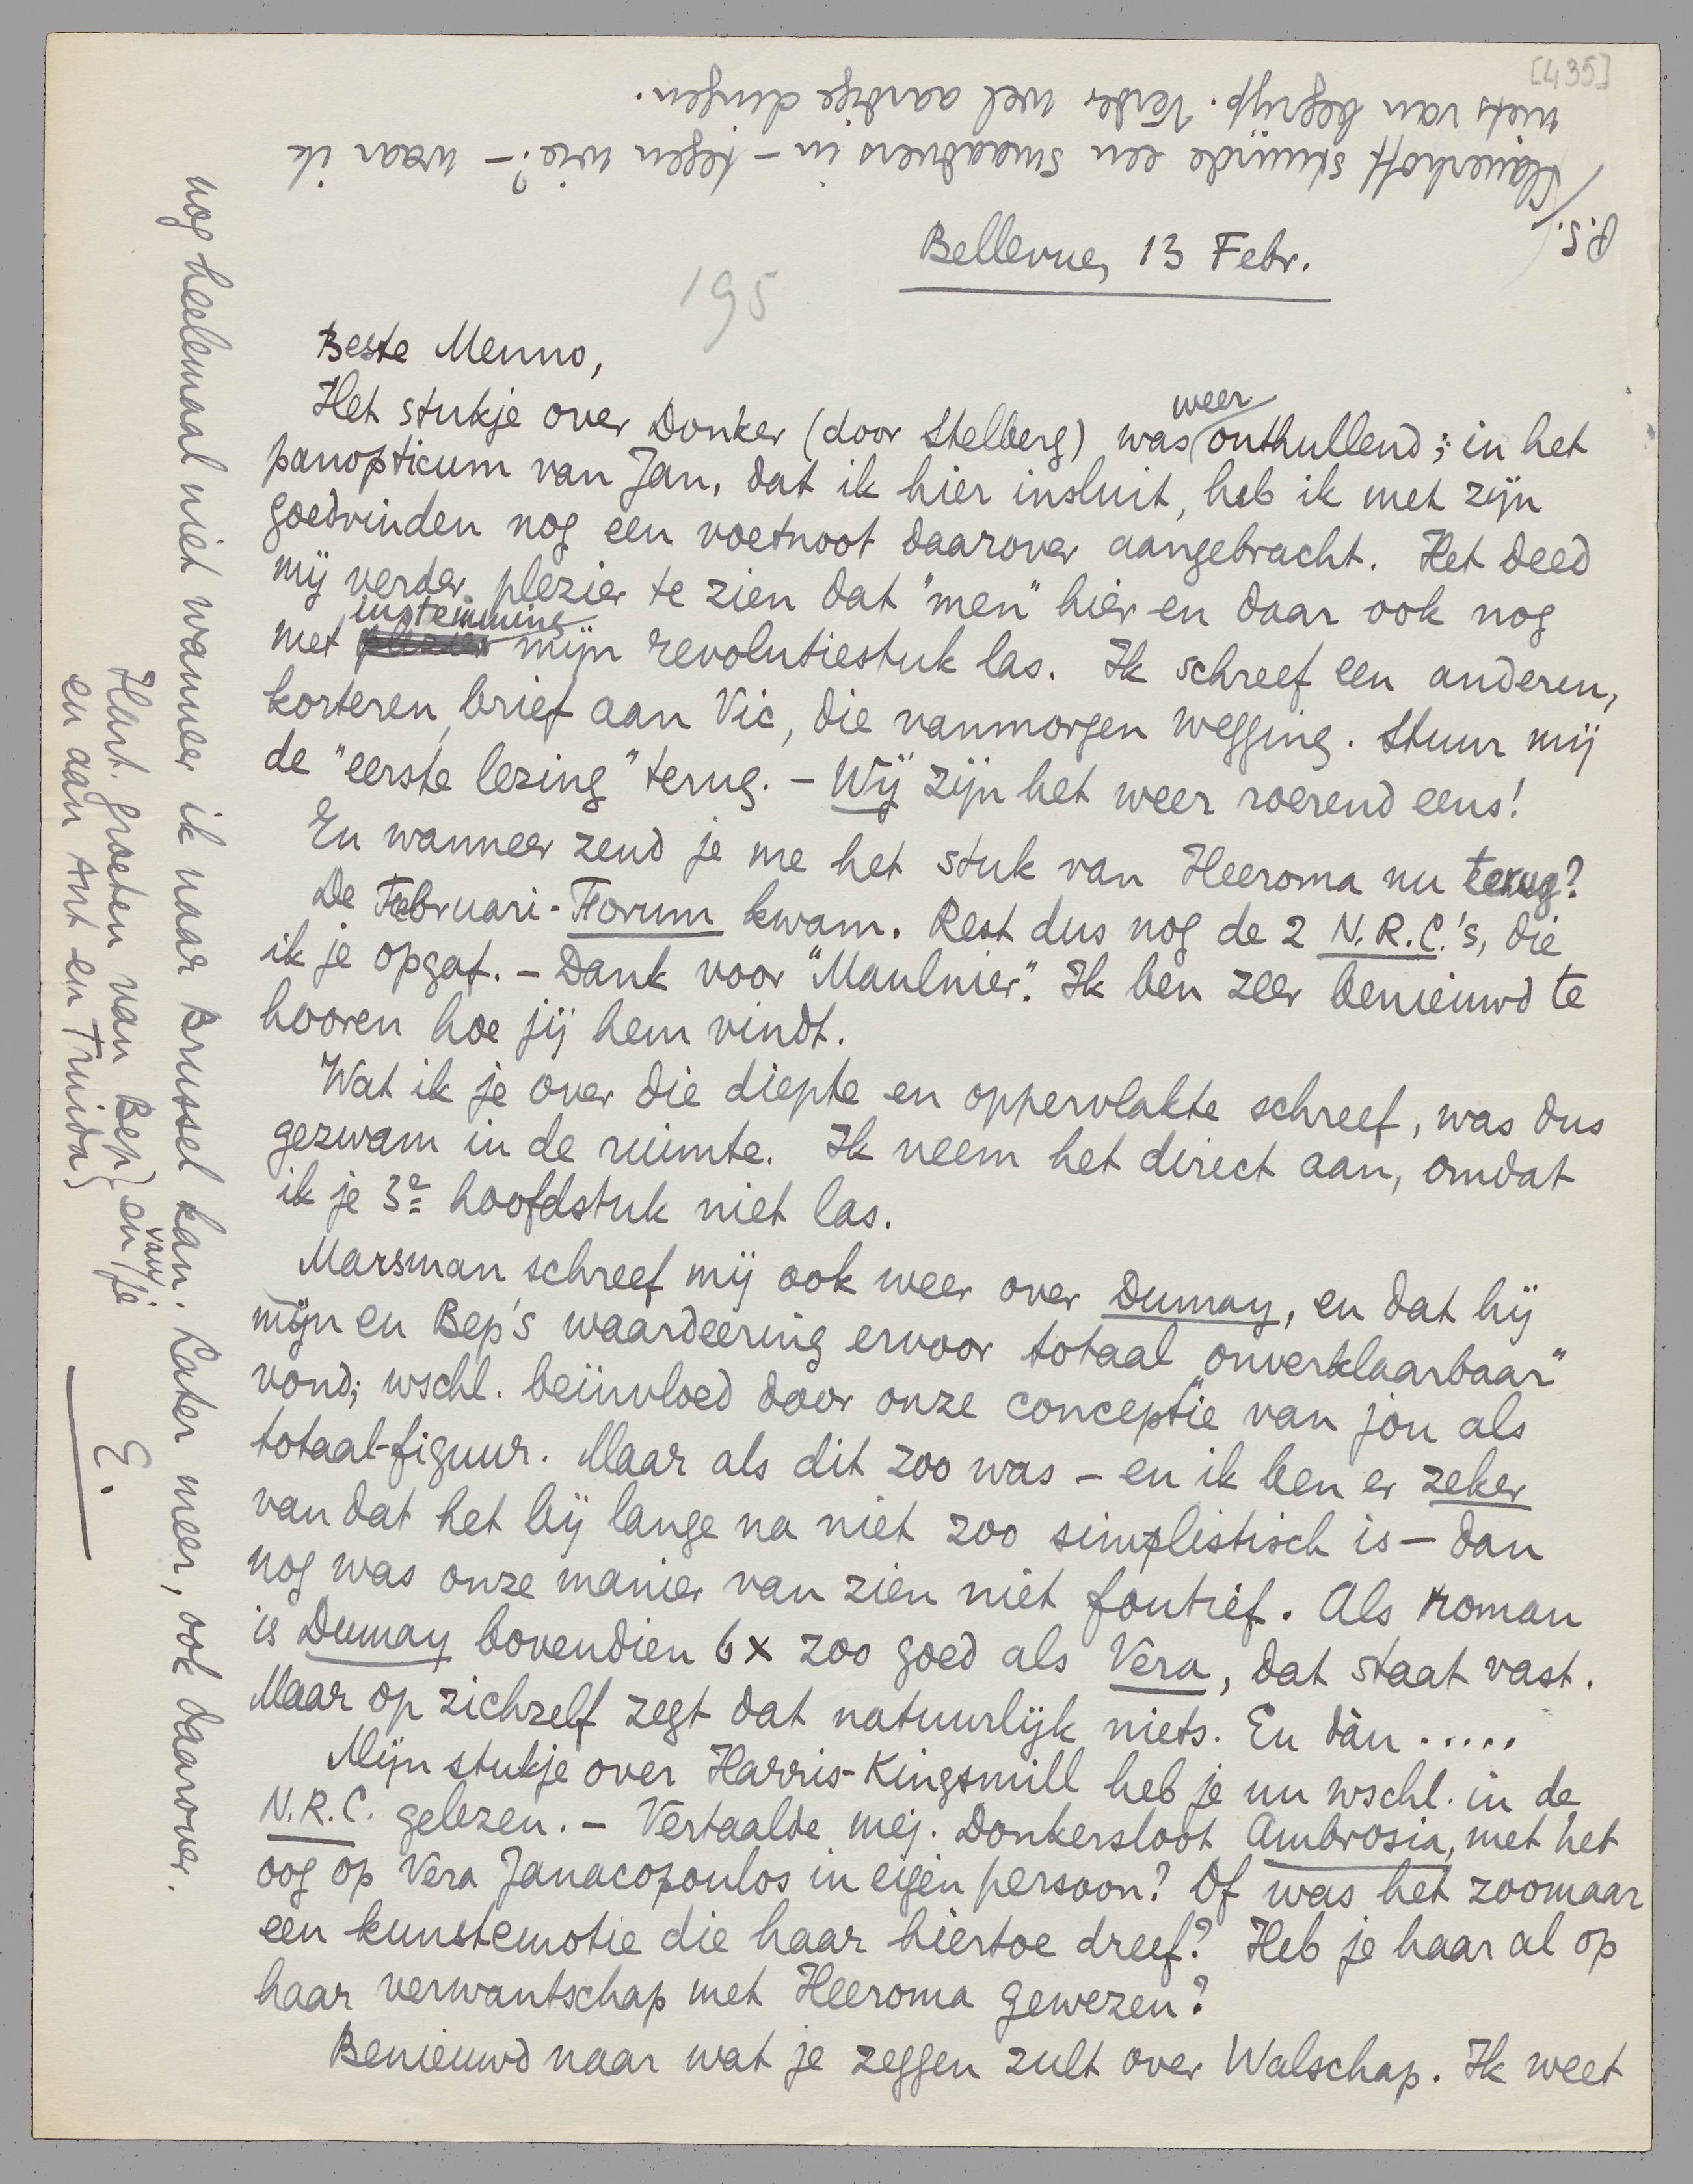 [435]
Bellevue, 13 Febr.
195
Beste Menno,
Het stukje over Donker (door Stelberg) was weer onthullend; in het
panopticum van Jan, dat ik hier insluit, heb ik met zijn
goedvinden nog een voetnoot daarover aangebracht. Het deed
mij verder plezier te zien dat "men" hier en daar ook nog
met instemming mijn revolutiestuk las. Ik schreef een anderen,
korteren, brief aan Vic, die vanmorgen wegging. Stuur mij
de "eerste lezing" terug. – Wij zijn het weer roerend eens!
En wanneer zend je me het stuk van Heeroma nu terug?
De Februari-Forum kwam. Rest dus nog de 2 N.R.C.'s, die
ik je opgaf. – Dank voor "Maulnier". Ik ben zeer benieuwd te
hooren hoe jij hem vindt.
Wat ik je over die diepte en oppervlakte schreef, was dus
gezwam in de ruimte. Ik neem het direct aan, omdat
ik je 3e hoofdstuk niet las.
Marsman schreef mij ook weer over Dumay, en dat hij
mijn en Bep's waardeering ervoor totaal "onverklaarbaar"
vond; wschl. beïnvloed door onze conceptie van jou als
totaal-figuur. Maar als dit zoo was – en ik ben er zeker
van dat het bij lange na niet zoo simplistisch is – dan
nog was onze manier van zien niet foutief. Als roman
is Dumay bovendien 6x zoo goed als Vera, dat staat vast.
Maar op zichzelf zegt dat natuurlijk niets. En dàn .....
Mijn stukje over Harris-Kingsmill heb je nu wschl. in de
N.R.C. gelezen. – Vertaalde mej. Donkersloot Ambrosia, met het
oog op Vera Janacopoulos in eigen persoon? Of was het zoomaar
een kunstemotie die haar hiertoe dreef? Heb je haar al op
haar verwantschap met Heeroma gewezen?
Benieuwd naar wat je zeggen zult over Walschap. Ik weet
nog heelemaal niet wanneer ik naar Brussel kan. Later meer, ook daarover.
Hart. groeten van Bep } en van je
en aan Ant en Truida }
E.
P.S. Slauerhoff stuurde een smaadvers in – tegen wie? – waar ik
niets van begrijp. Verder wel aardige dingen.